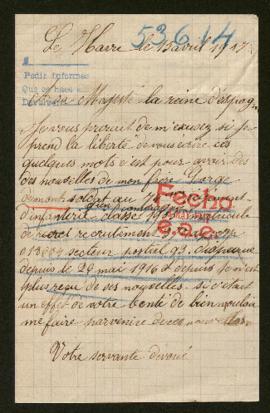 53614
Le Havre le 15 avril 1917
1
Pedir informes
Que se hace a
Majesté la reine d'Espag
Je vous prirait de m'éxcusez si je
prend la liberté de vous écire ces
quelques mots c'est pour avoir des
des nouvelles de mon frère
soldat au
Fecho
d'infanterie classe matricule
recrutement
secteur postal 93
depuis le 29 mai 1916 et depuis je n'est
plus reçu de ses nouvelles si c'etait
un effet de votre bonté de bien vouloir
me faire parvenire de ces nouvelles
Votre servante devoué